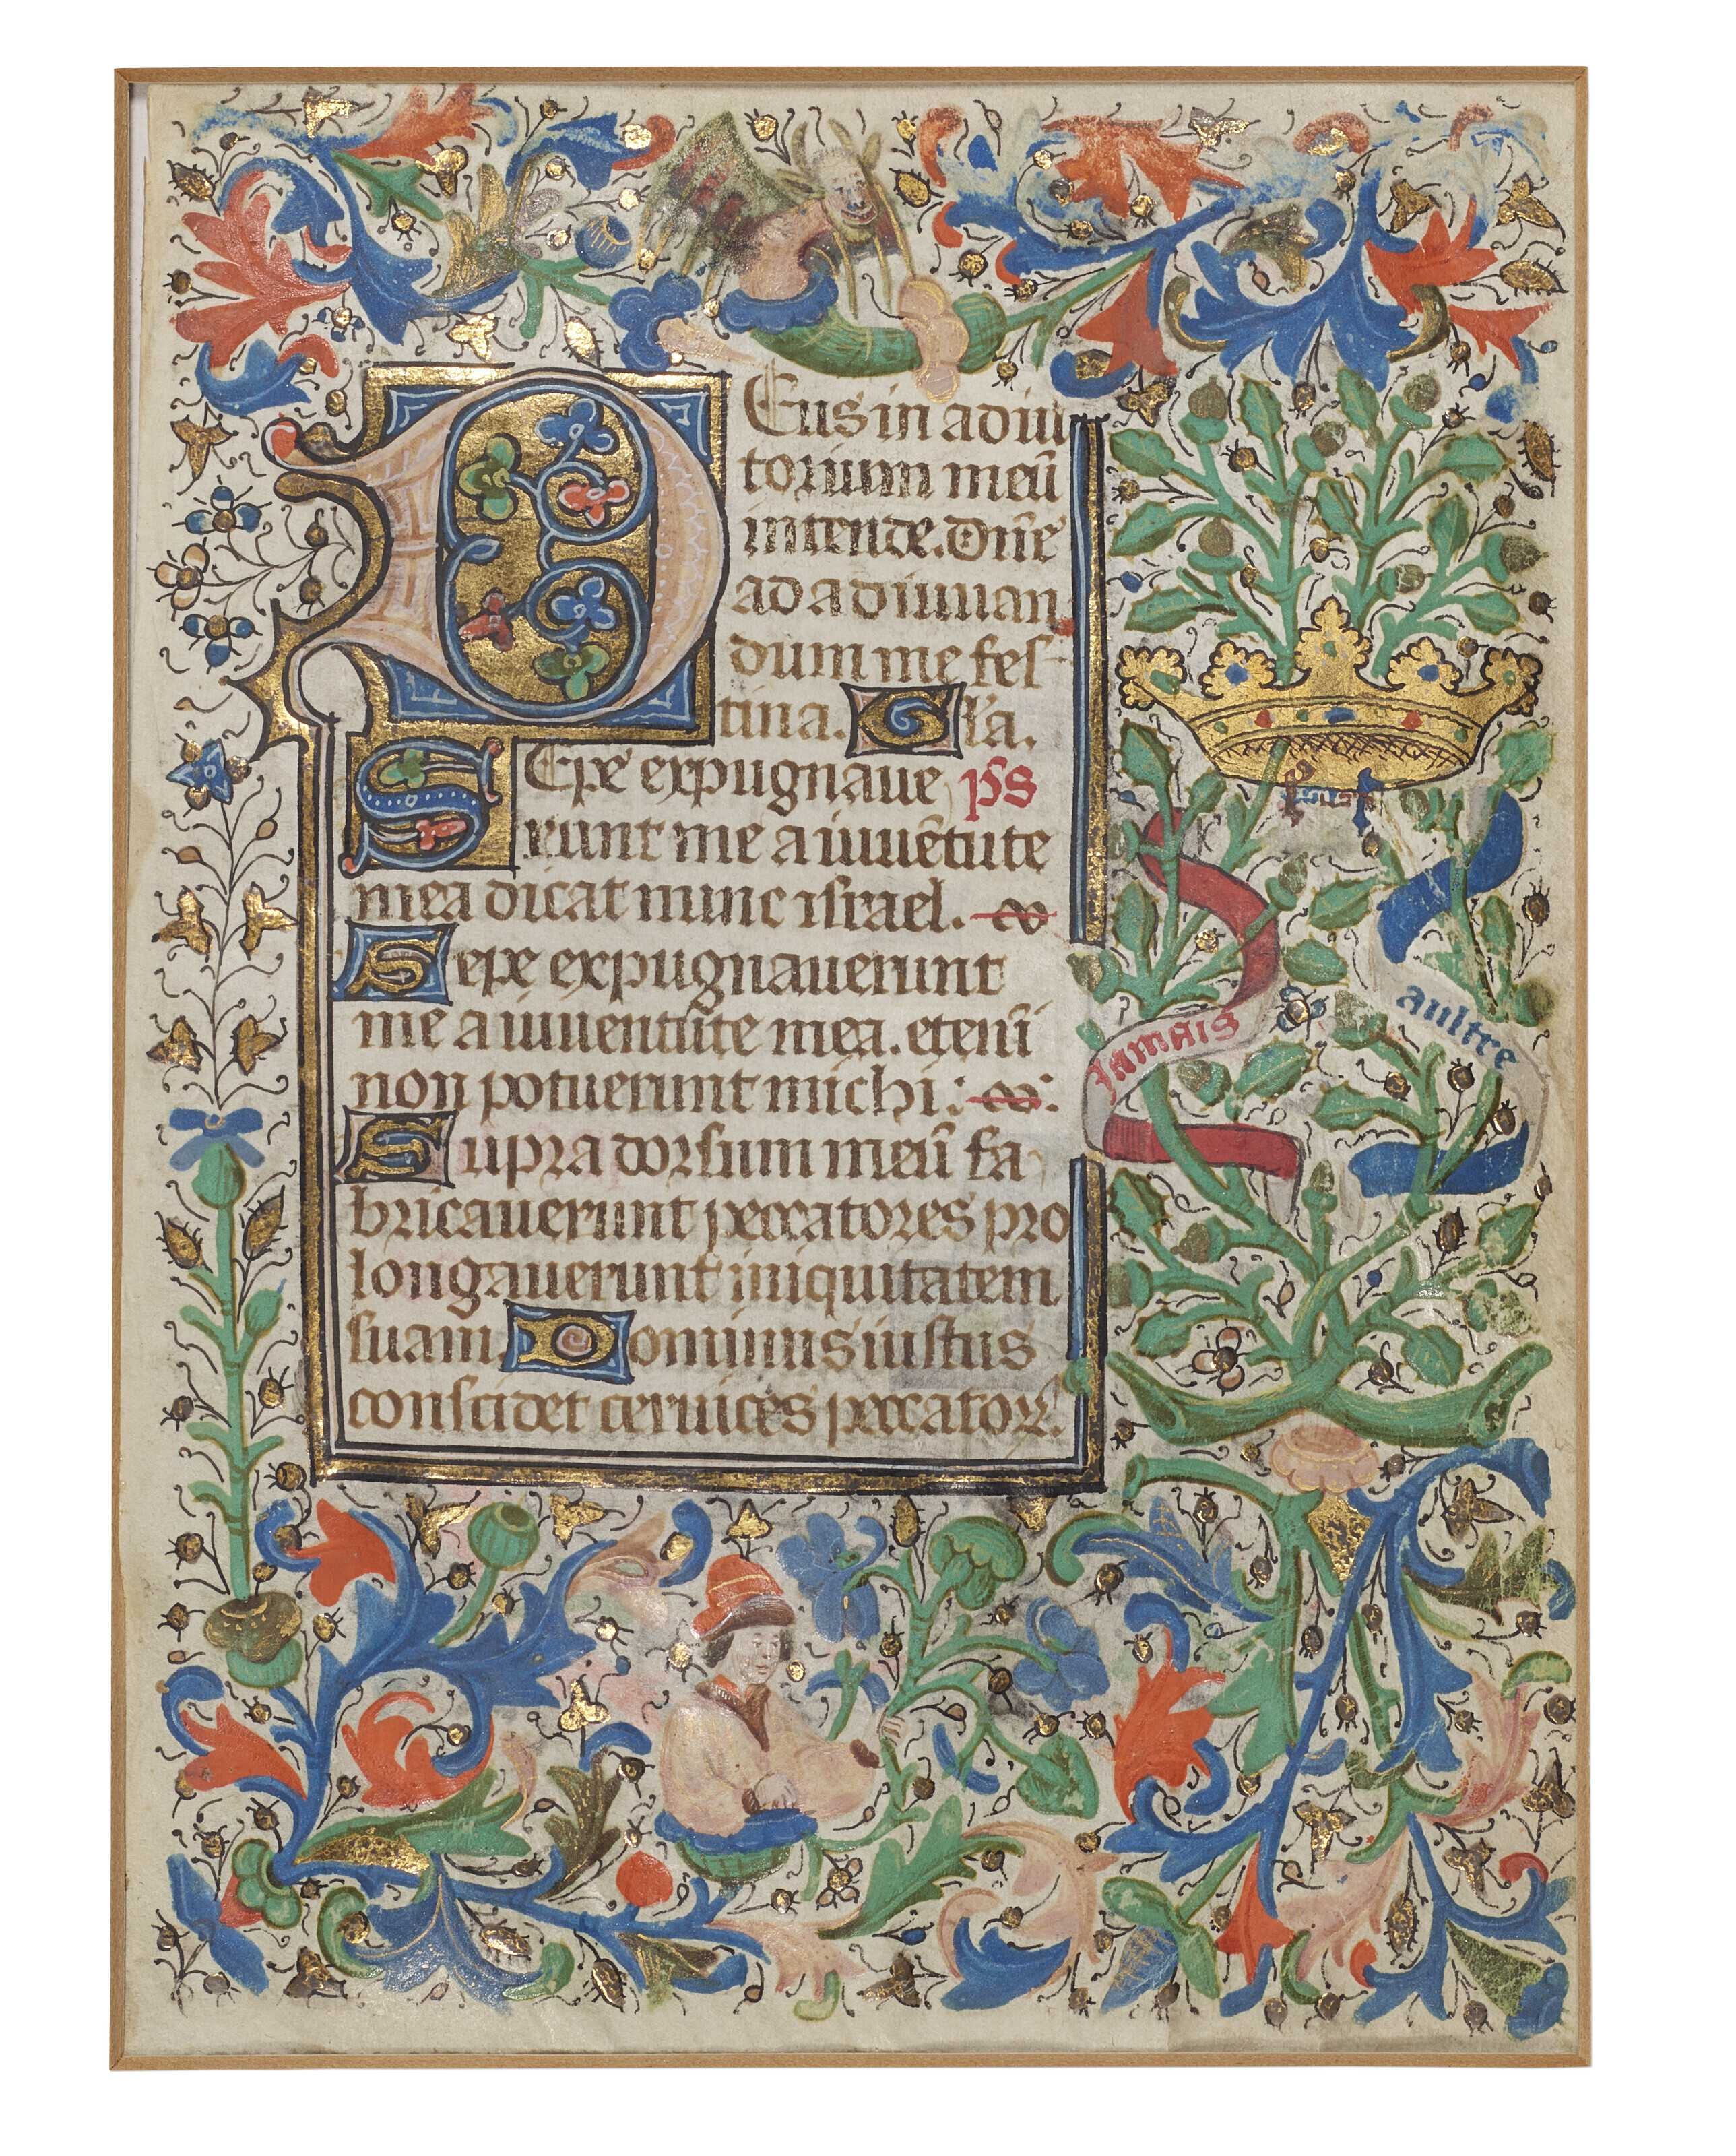 Eus in adiu
torium meū
intende. Dn̄e
ad adiuuan
dum me fes
tina. Gl'a.
Epe expugnaue ps
runt me a iuuētute
mea dicat nunc israel.
Sepe expugnauerunt
me a iuuentute mea. etenī
non potuerunt michi :
Supra dorsum meū fa
bricauerunt peccatores pro
longauerunt iniquitatem
suam. Dominus iustus
conscidet ceruices peccatoꝝ.
Jamais
aultre